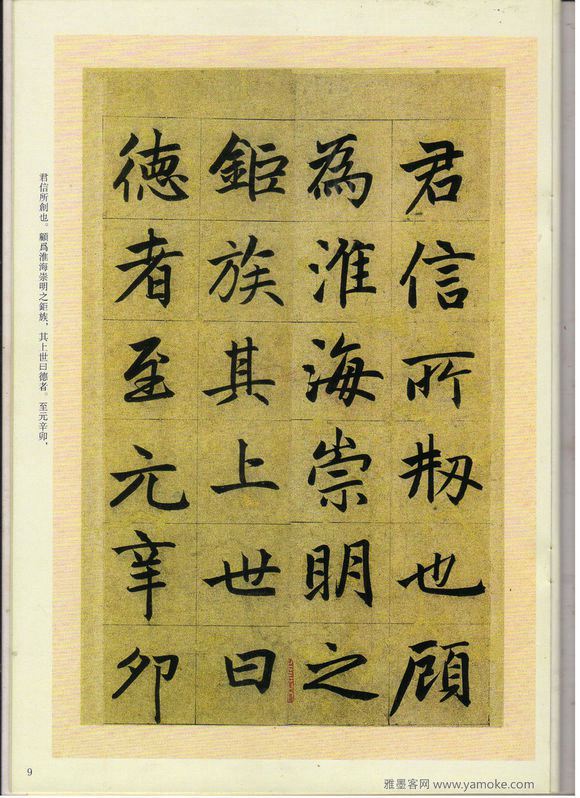 君信所剏也顧
為淮海崇明之
鉅族其上世曰
德者至元辛卯
君信所創也。顧爲淮海崇明之鉅族，其上世曰德者。至元辛卯，
9
雅墨客网 www.yamoke.com